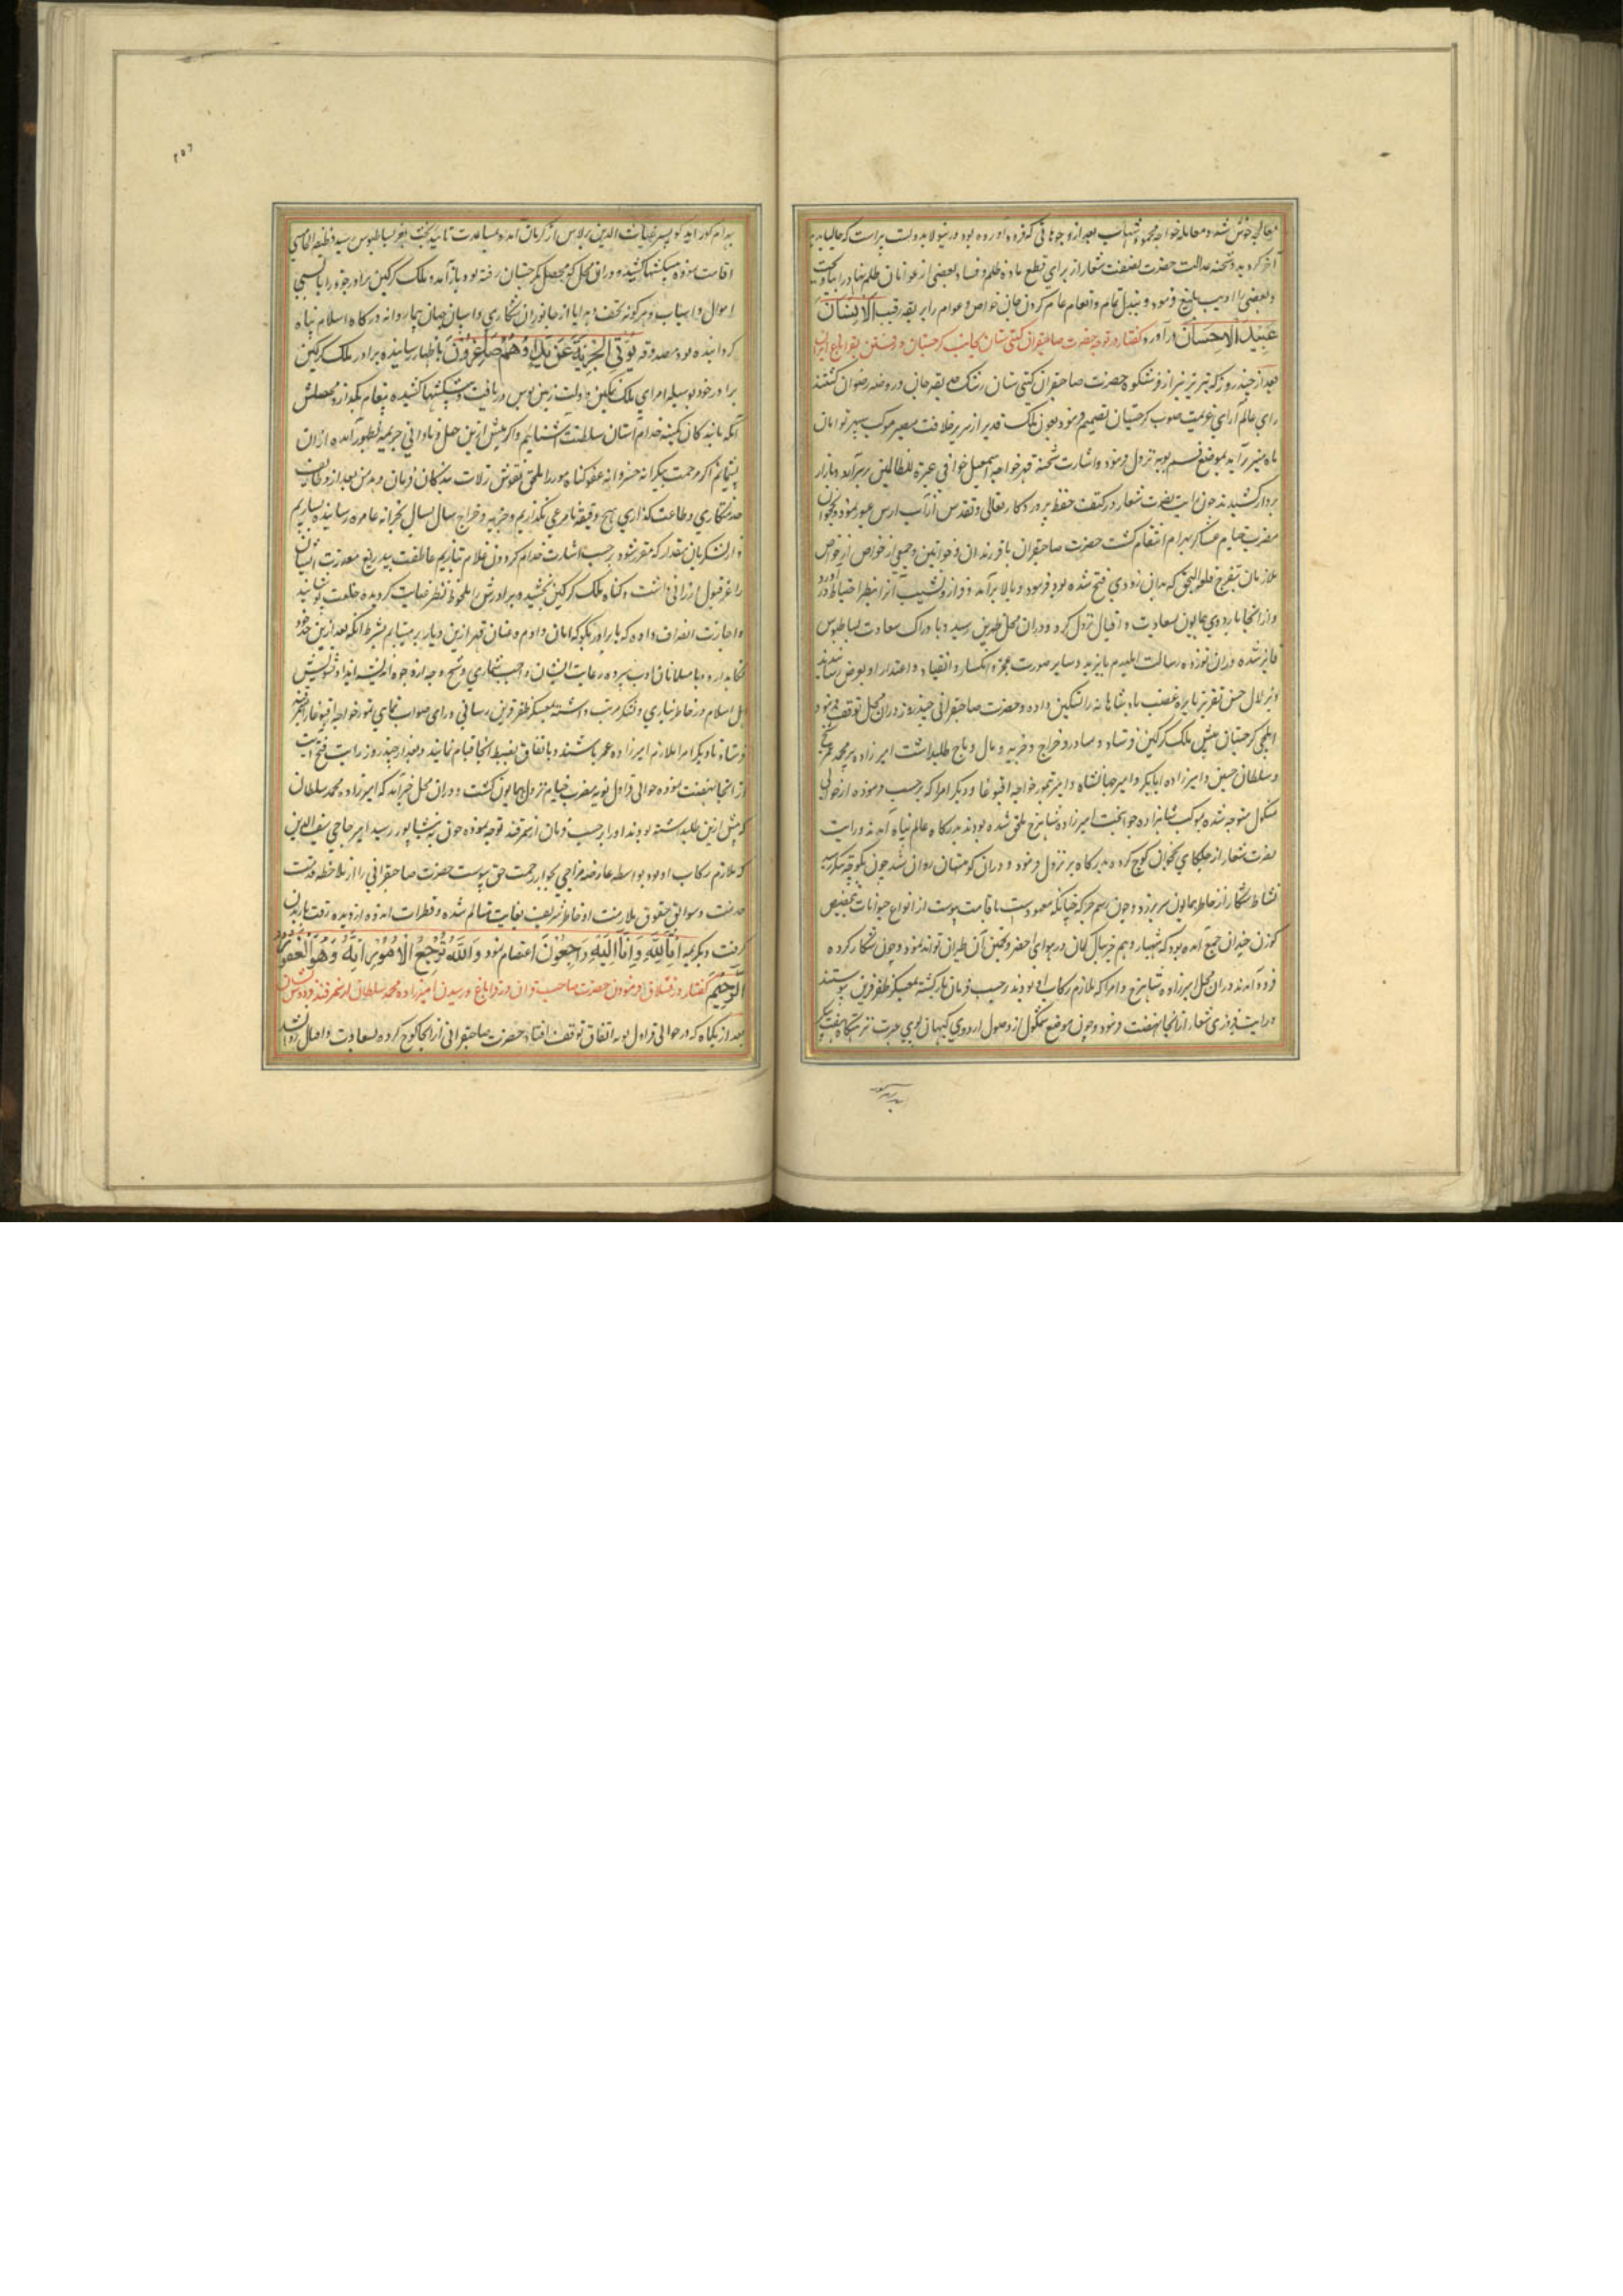 آخر کردید و شحنه عدالت حضرت نصفت شعار از برای قطع ماده ظلم و فساد بعضی از عوانان ظلم نهاد را
و بعضی را ادیب بلیغ فرمود و ببذل تمام و انعام عام کردن جان خواص و عوام را بربقه رقیت الانسان
عبید الاحسان درآورد گفتار در توجه حضرت صاحبقران گیتی ستان بجانب گرجستان و رفتن بقراباغ
بعد از چند روز که تبریز از فر شکوه حضرت صاحبقران گیتی ستان رشک ده بقیه جان و روضه رضوان گشتند
رای عالم آرای عزیمت صوب گرجستان تصمیم فرمود بعون ملک قدیر از سریر خلافت مصیر موکب سپهر توامان
بموضع قم توبه نزول فرمود و اشارت شحنه قهر خواجه اسمعیل خوافی عبرة للظالمین بر سر بازار
بردار کشیدند چون رایت نصرت شعار در کنف حفظ پروردگار تعالی و تقدس از آب ارس عبور نمود و نخجوان
مضرب خیام عساکر بهرام انتقام گشت حضرت صاحبقران با فرزندان و خواتین و جمعی از خواص
ملازمان بتفرج قلعه النجق که بدان زودی فتح شده بود فرمود و ببالا برآمد و فراز و نشیب آنرا بنظر احتیاط درآورد
و از انجا باردوی همایون بسعادت و اقبال نزول کرد و دران محل طهرتن رسید و با دراک سعادت بساطبوس
فایز شده و رسالت ایلدرم بایزید و سایر صورت عجز و انکسار و انقیاد و اعتذار او بعرض رسانید
و بزلال حسن تقریر نایره غضب پادشاهانه را تسکین داده و حضرت صاحبقرانی چند روز دران محل توقف فرمود
ایلچی گرجستان پیش ملک گرگین فرستاد و ساو رو خراج و جزیه و مال و باج طلبداشت امیرزاده پیر محمد عمر شیخ
و سلطان حسین و امیرزاده ابابکر و امیر جهانشاه و امیر تیمور خواجه اقبوغا و دیگر امرا که برحسب فرموده از حوالی
منکول متوجه شده بموکب شاهزاده جوانبخت امیرزاده شاهرخ ملحق شده بودند بدرگاه عالم پناه آمدند و رایت
نصرت شعار از جلکای نخجوان کوچ کرده بدرگاه بر نزول فرمود و دران کوهستان روان شد چون بکوکچه تنکز رسید
نشاط شکار از خاطر همایون سر برزد و چون رسم جرگه چنانکه معهودست باقامت پیوست از انواع حیوانات بتخصیص
گوزن چندان جمع آمده بود که شهباز وهم خیال گمان در هوای حصر و تخمین آن طیران تواند نمود و چون شکار کرده
فرود آمدند دران محل امیرزاده شاهرخ و امرا که ملازم رکاب او بودند برحسب فرمان بازگشته بمعسکر ظفر قرین پیوستند
و رایت فیروزی شعار از انجا نهضت فرمود و چون موضع شمکول از وصول اردوی کیهان پوی
۲۵۶
اقامت نموده پیشکشها کشید و دران محل که محصل گرجستان رفته بود باز آمد و ملک گرگین برادر خود را با بسی
اموال و اسباب و هرگونه تحف و هدایا از جانوران شکاری و اسپان جهان پیما روانه درگاه اسلام پناه
گردانیده بود مصدوقه یؤتی الجزیة عن ید وهم صاغرون باظهار رسانیده برادر ملک گرگین
برادر خود بوسیله امرای ملک تمکین دولت زمین بوس دریافت و پیشکشها کشیده پیغام بگذارد محصلش
آنکه بندگان کمینه خدام آستان سلطنت آشیانیم و اگر پیش ازین جهل و نادانی جریمه بظهور آمده ازان
پشیمانم اگر مرحمت بیکرانه خسروانه عفو گناه مرا ملحق بنقوش زلات بندگان فرمان وبدمن بعد از وظایف
خدمتکاری و طاعت گذاری هیچ دقیقه نامرعی نگذاریم و جزیه و خراج سال بسال بخزانه عامره رسانیده بسپاریم
و از لشکریان مقدار که مقرر شود برحسب اشارت خدام گردون غلام بیاریم عاطفت بیدریغ معذرت ایشان
را عز قبول ارزانی داشت و گناه ملک گرگین بخشیده برادرش ملحوظ نظر عنایت گردیده خلعت پوشانید
و اجازت انصراف داده که با برادر بگو که امان دادم و عنان قهر ازین دیار برمیتابم بشرط آنکه بعد ازین حد خود
نگاهدارد و با مسلمانان ادب سپرده رعایت ایشان واجب شماری و بهیچ وجه از وجوه اندیشه ایذا و تشویش
اهل اسلام در خاطر نیاری و لشکر مرتب داشته بمعسکر ظفر قرین رسانی و رای صواب نمای تیمور خواجه اقبوغا
فرستاد تا دیگر امرا ملازم امیرزاده عمر باشند و باتفاق بضبط آنجا قیام نمایند و بعد از چند روز رایت فتح آیت
از آنجا نهضت نموده حوالی قراول توبه مضرب خیام نزول همایون گشت و دران محل خبر آمد که امیرزاده محمد سلطان
که پیش ازین طلبداشته بودند او را برحسب فرمان از سمرقند توجه نموده چون به نیشاپور رسید امیر حاجی سیف الدین
که ملازم رکاب او بود بواسطه عارضه مزاجی بجوار رحمت حق پیوست حضرت صاحبقرانی را از ملاحظه قدمت
خدمت و سوابق حقوق ملازمت او خاطر شریف بغایت متالم شده و قطرات اندوه از دیده رقت باریدن
گرفت و بکریمه انا لله و انا الیه راجعون اعتصام نمود و الله ترجع الامور انه و هو الغفور
الرحیم گفتار در قشلاق فرمودن حضرت صاحبقران در قراباغ و رسیدن امیرزاده محمد سلطان از سمرقند فردوس نشان
بعد از یکماه که در حوالی قراول توبه اتفاق توقف افتاد حضرت صاحبقرانی از انجا کوچ کرده بسعادت و اقبال روان شد